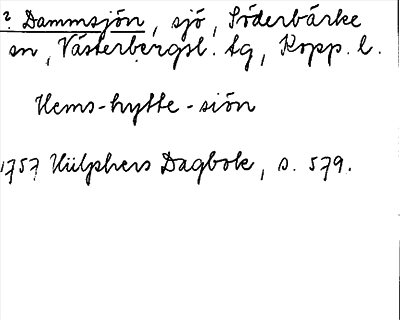 ? Dammsjön, sjö, Söderbärke
sn, Västerbergsl. tg, Kopp. l.
Hems-hytte-siön
1757 Hülphers Dagbok, s. 579.